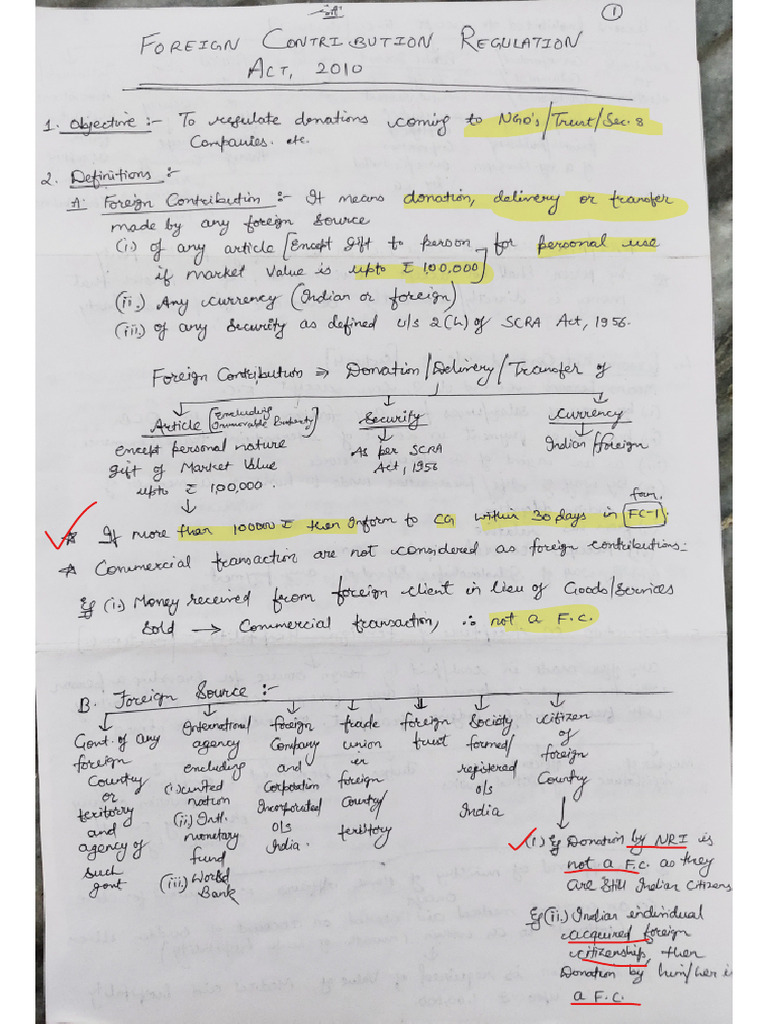 1
FOREIGN CONTRIBUTION REGULATION
ACT, 2010
1. Objective :- To regulate donations coming to NGO's/Trust/Sec. 8
Companies. etc.
2. Definitions :-
A. Foreign Contribution :- It means donation, delivery or transfer
made by any foreign source
(i.) of any article [Except gift to person for personal use
if market value is upto ₹ 1,00,000]
(ii.) Any currency (Indian or foreign)
(iii.) of any security as defined u/s 2(h) of SCRA Act, 1956.
Foreign Contribution ⇒ Donation/Delivery/Transfer of
Article [Excluding Immovable Property] Security Currency
except personal nature As per SCRA Indian/foreign
gift of Market Value Act, 1956
upto ₹ 1,00,000.
* If more than 100000 ₹ then inform to CG within 30 days in form FC-1.
* Commercial transaction are not considered as foreign contributions:-
Eg (i.) Money received from foreign client in lieu of Goods/Services
sold → Commercial transaction, ∴ not a F.C.
B. Foreign Source :-
Govt. of any
foreign
Country
or
teritory
and
agency of
such
govt
International
agency
excluding
(i) united
nation
(ii) Intl.
monetary
fund
(iii.) World
Bank
foreign
Company
and
Corporation
Incorporated
o/s
India.
trade
union
in
foreign
Country/
teritory
foreign
trust
Society
formed/
registered
o/s
India
citizen
of
foreign
Country
(i.) Eg Donation by NRI is
not a F.C. as they
are still Indian citizens
Eg (ii.) Indian individual
acquired foreign
citizenship, then
Donation by him/her is
a F.C.